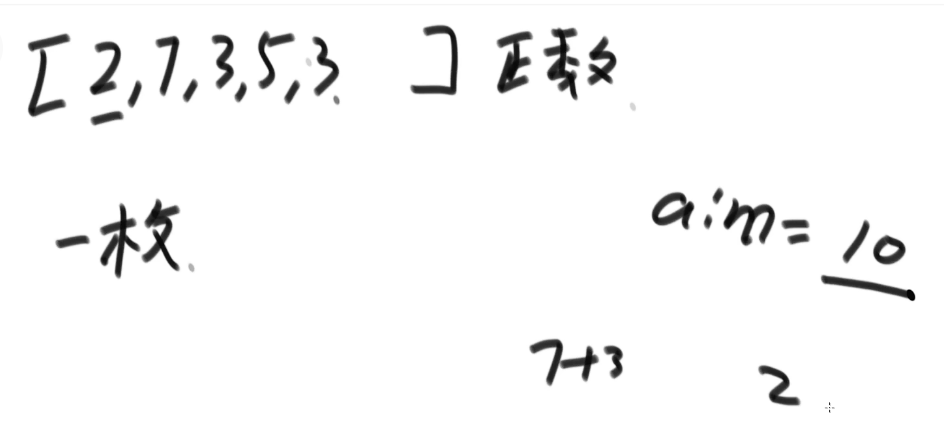 [2,7,3,5,3 ] 正数
一枚
aim=10
7+3 2